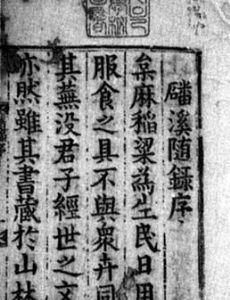 磻溪随録序
枲麻稻粱為生民日用
服食之具不與衆卉同
其蕪没君子經世之文
亦然雖其書藏於山林